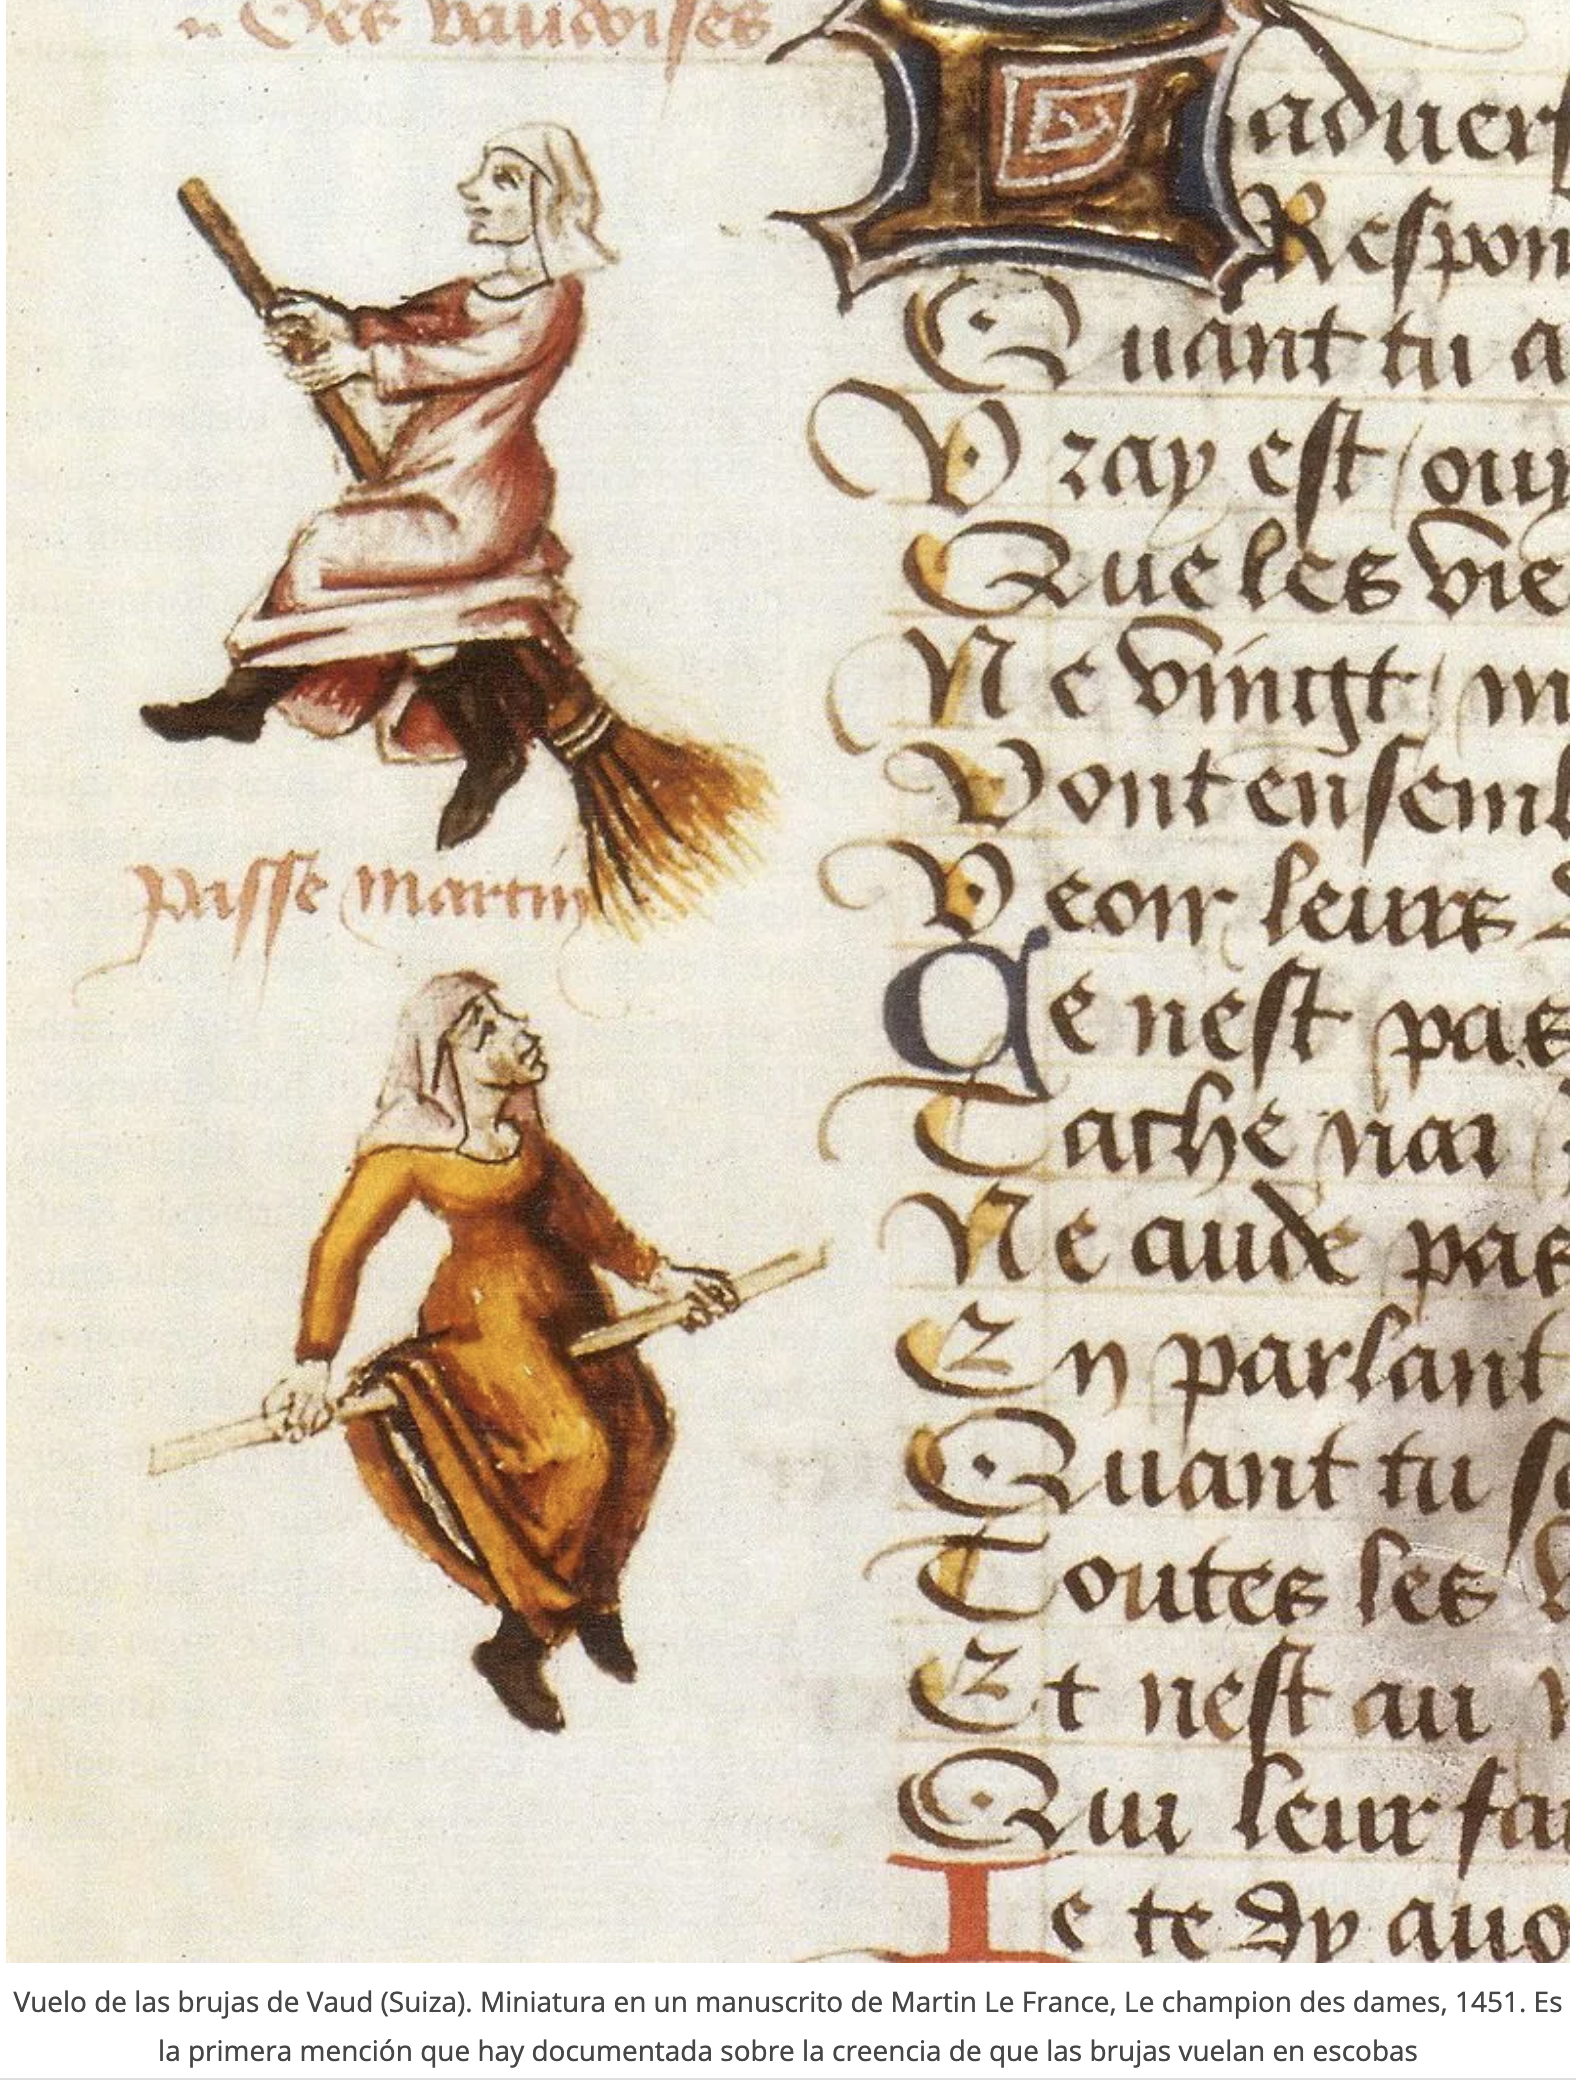 Des vaudoises
passe martin
aduers
Respon
Quant tu a
Vray est ouy
Que les vie
Ne vingt m
Vont ensembl
Veoir leurs
Ce nest pas
Tache nai
Ne aude pas
En parlant
Quant tu so
Toutes les
Et nest au
Qui leur fai
Ie te dy auo
Vuelo de las brujas de Vaud (Suiza). Miniatura en un manuscrito de Martin Le France, Le champion des dames, 1451. Es
la primera mención que hay documentada sobre la creencia de que las brujas vuelan en escobas